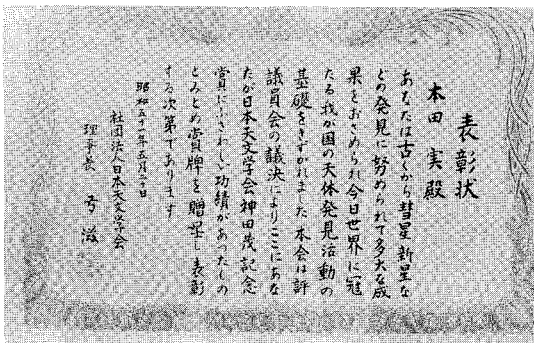 表彰状
本田 実殿
あなたは古くから彗星新星な
どの発見に努められて多大な成
果をおさめられ今日世界に冠
たる我が国の天体発見活動の
基礎をきずかれました 本会は評
議員会の議決によりここにあな
たが日本天文学会神田茂記念
賞にふさわしい功績があったもの
とみとめ賞牌を贈呈し表彰
する次第であります
昭和五十一年五月二十日
社団法人日本天文学会
理事長